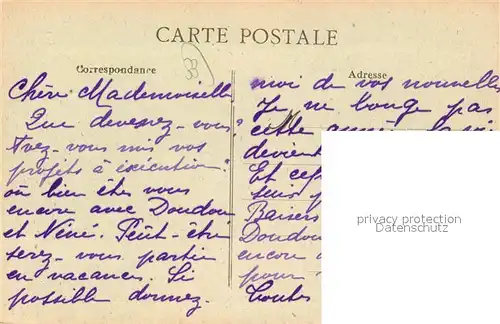 CARTE POSTALE
Correspondance
Adresse
Chère Mademoiselle
Que devenez-vous?
Avez-vous mis vos
projets à exécution?
où bien êtes vous
encore avec Doudou
et Néné. Peut-être
serez-vous partie
en vacances. Si
possible donnez.
moi de vos nouvelles
Je ne bouge pas
cette année la
devient
Et
suis
Baisers
Doudou
encore
pour
Toutes
privacy protection
Datenschutz